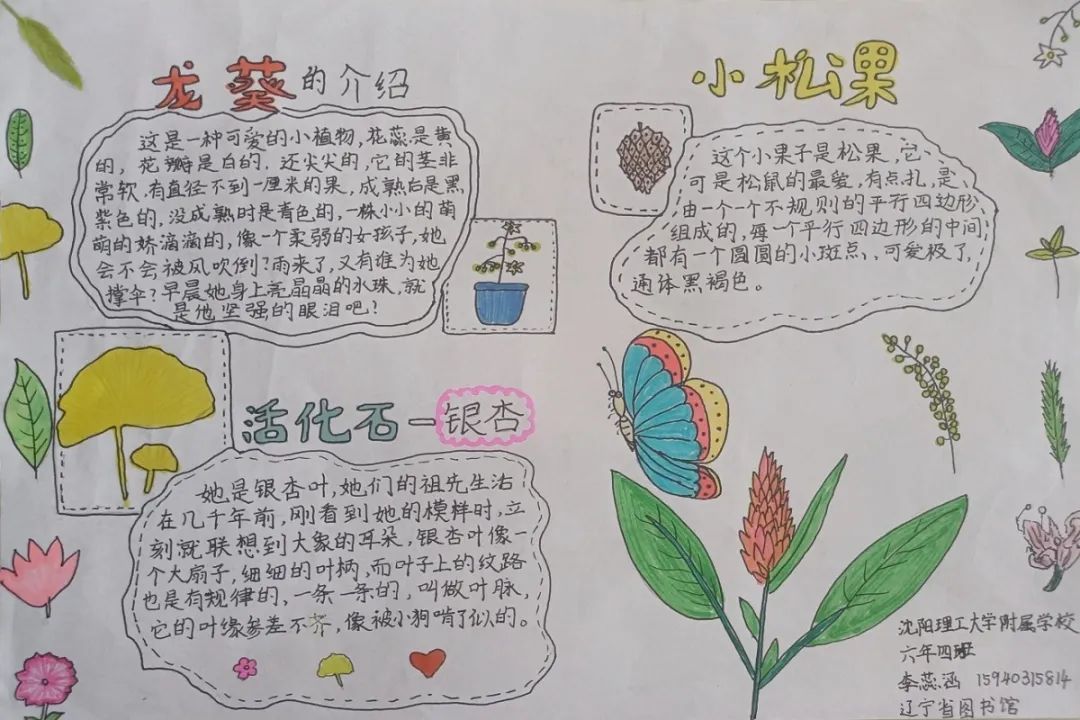 龙葵的介绍
这是一种可爱的小植物,花蕊是黄
的,花瓣是白的,还尖尖的,它的茎非
常软,有直径不到一厘米的果,成熟后是黑
紫色的,没成熟时是青色的,一株小小的萌
萌的娇滴滴的,像一个柔弱的女孩子,她
会不会被风吹倒?雨来了,又有谁为她
撑伞?早晨她身上亮晶晶的水珠,就
是他坚强的眼泪吧!
活化石—银杏
她是银杏叶,她们的祖先生活
在几千年前,刚看到她的模样时,立
刻就联想到大象的耳朵,银杏叶像一
个大扇子,细细的叶柄,而叶子上的纹路
也是有规律的,一条一条的,叫做叶脉,
它的叶缘参差不齐,像被小狗啃了似的。
小松果
这个小果子是松果,它
可是松鼠的最爱,有点扎,是
由一个一个不规则的平行四边形
组成的,每一个平行四边形的中间
都有一个圆圆的小斑点,可爱极了,
通体黑褐色。
沈阳理工大学附属学校
六年四班
李蕊涵 15940315814
辽宁省图书馆